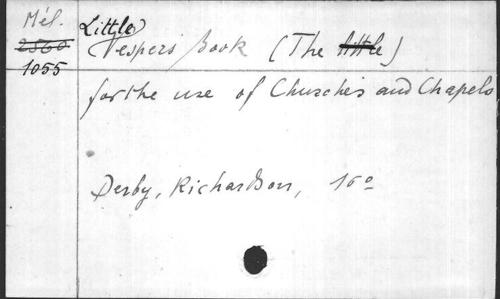 Mél.
2560
1055
Little
Vespers book (The little)
for the use of Churches and Chapels
Derby, Richardson, 16º